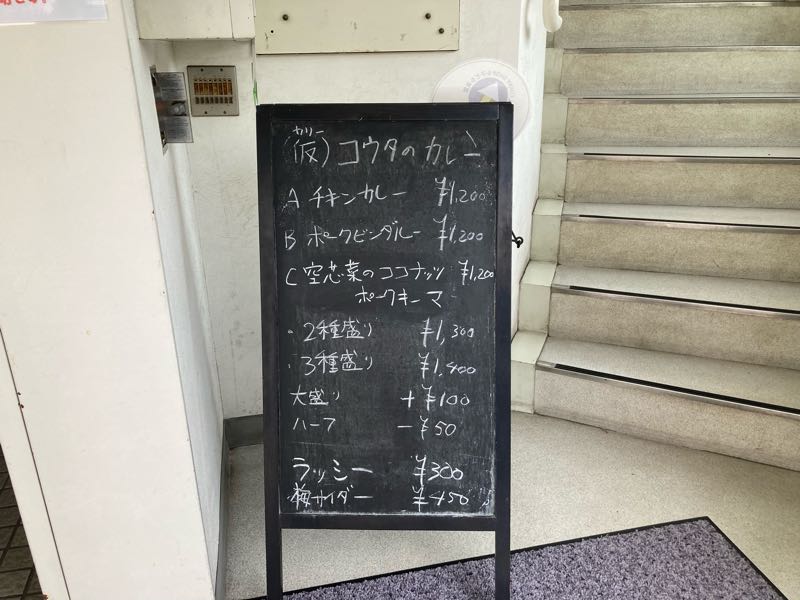 (仮)コウタのカレー
カリー
A チキンカレー ¥1,200
B ポークビンダルー ¥1,200
C 空芯菜のココナッツ ¥1,200
ポークキーマ
・2種盛り ¥1,300
・3種盛り ¥1,400
大盛り +¥100
ハーフ -¥50
ラッシー ¥300
梅サイダー ¥450